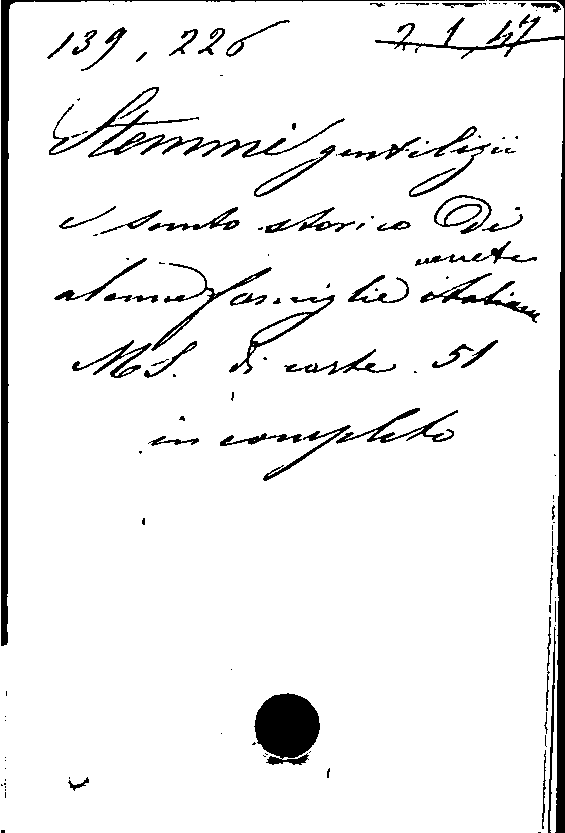 139, 226 2.1.47
Stemmi gentilizii
e sunto storico di
venete
alcune famiglie italiane
MS. di carte 51
incompleto